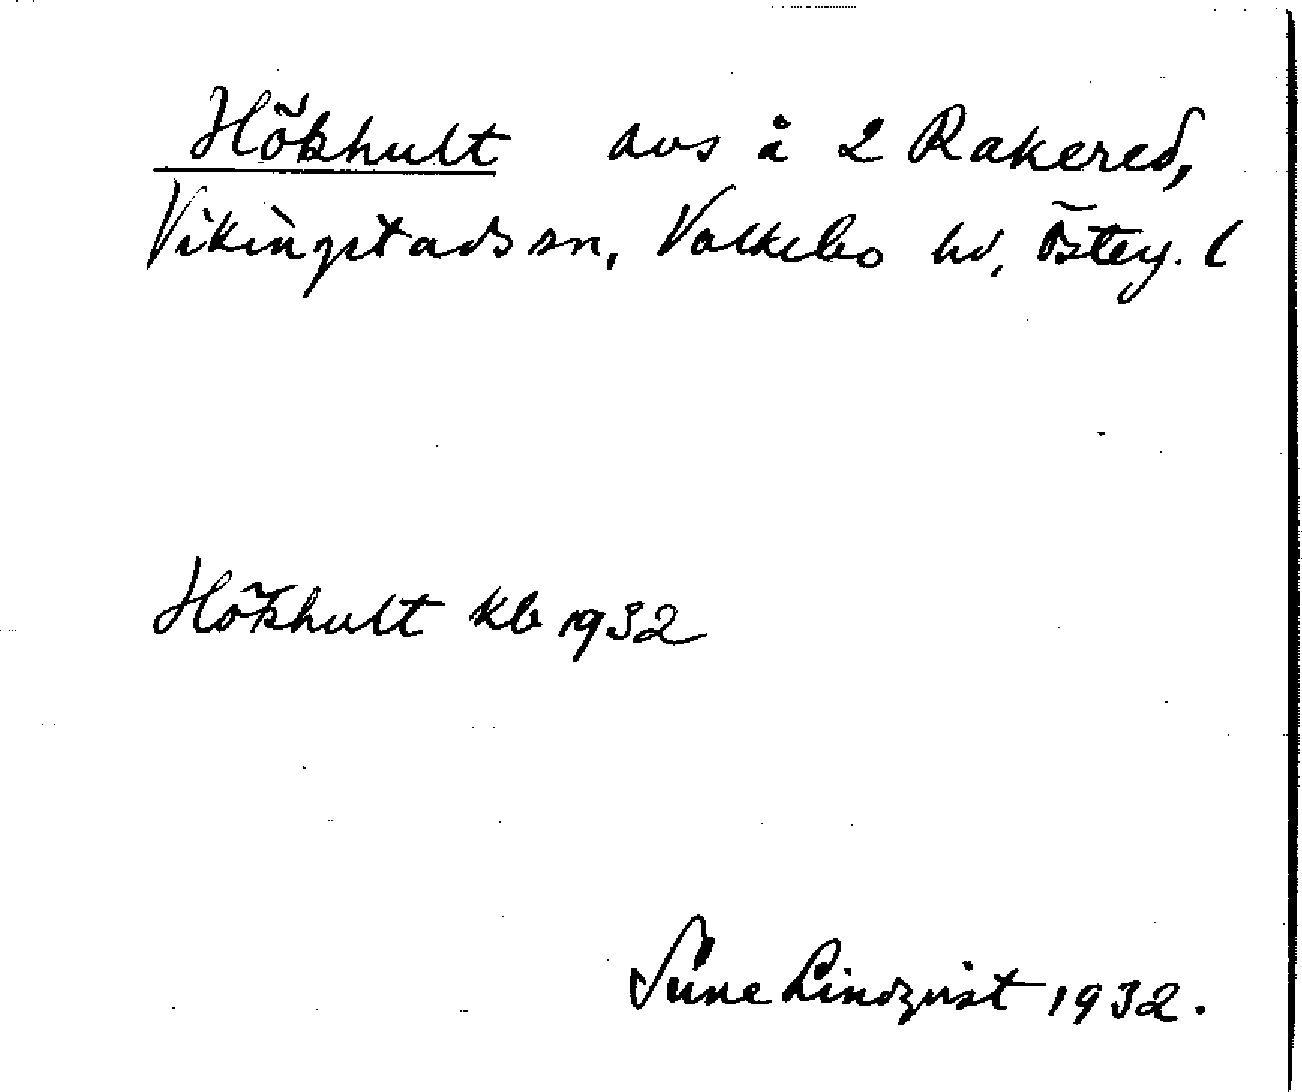 Hökhult avs å 2 Rakered,
Vikingstads sn, Valkebo hd, Österg. l
Hökhult kb 1932
Sune Lindqvist 1932.